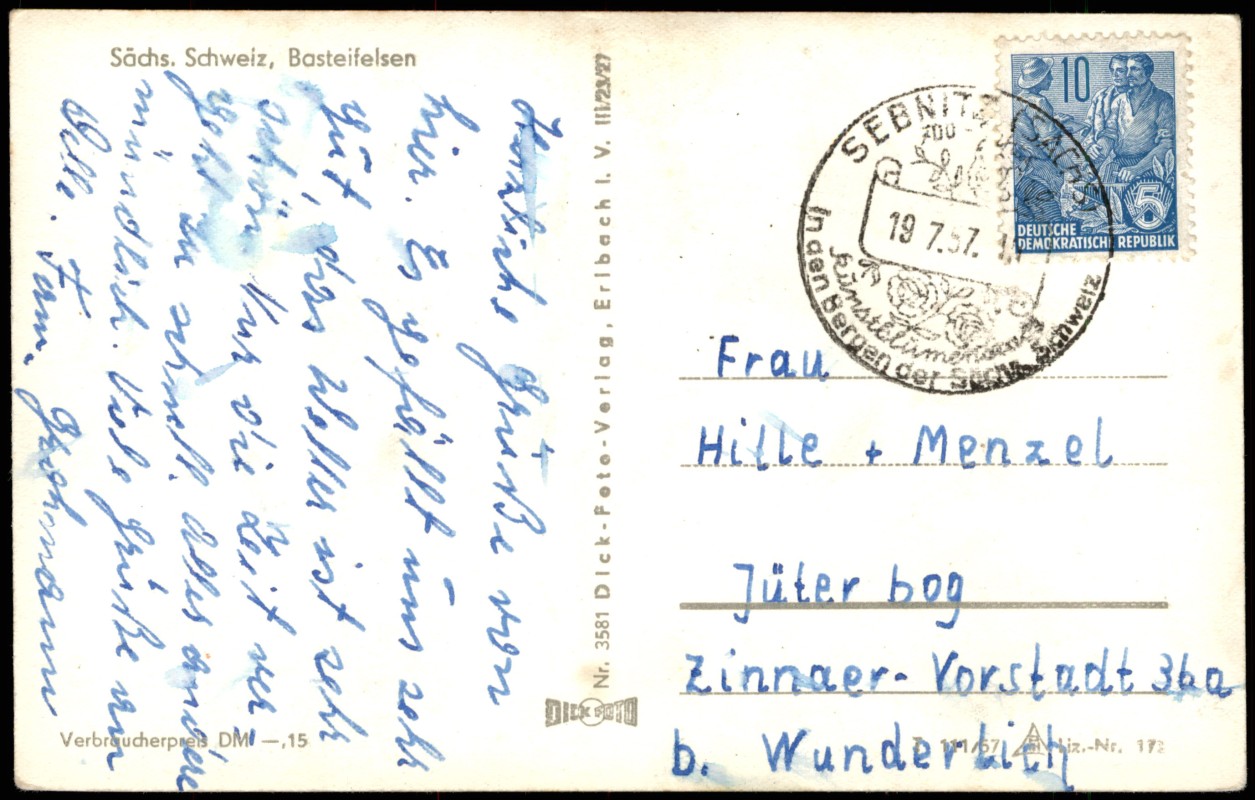 Sächs. Schweiz, Basteifelsen
Herzliche Grüße von
hier. Es gefällt uns sehr
gut, das Wetter ist sehr
schön. Nur die Zeit ver-
geht zu schnell. Alles andere
mündlich. Viele Grüße an
alle. Fam. Grohmann
Verbraucherpreis DM —,15
Nr. 3581 Dick-Foto-Verlag, Erlbach i. V. III/29/27
DICK FOTO
10
5
DEUTSCHE
DEMOKRATISCHE REPUBLIK
SEBNITZ (SACHS)
700
19.7.57.
Kunstblumen
In den Bergen der Sächs. Schweiz
Frau
Hille + Menzel
Jüterbog
Zinnaer-Vorstadt 36a
b. Wunderlich
111/57 Liz.-Nr.